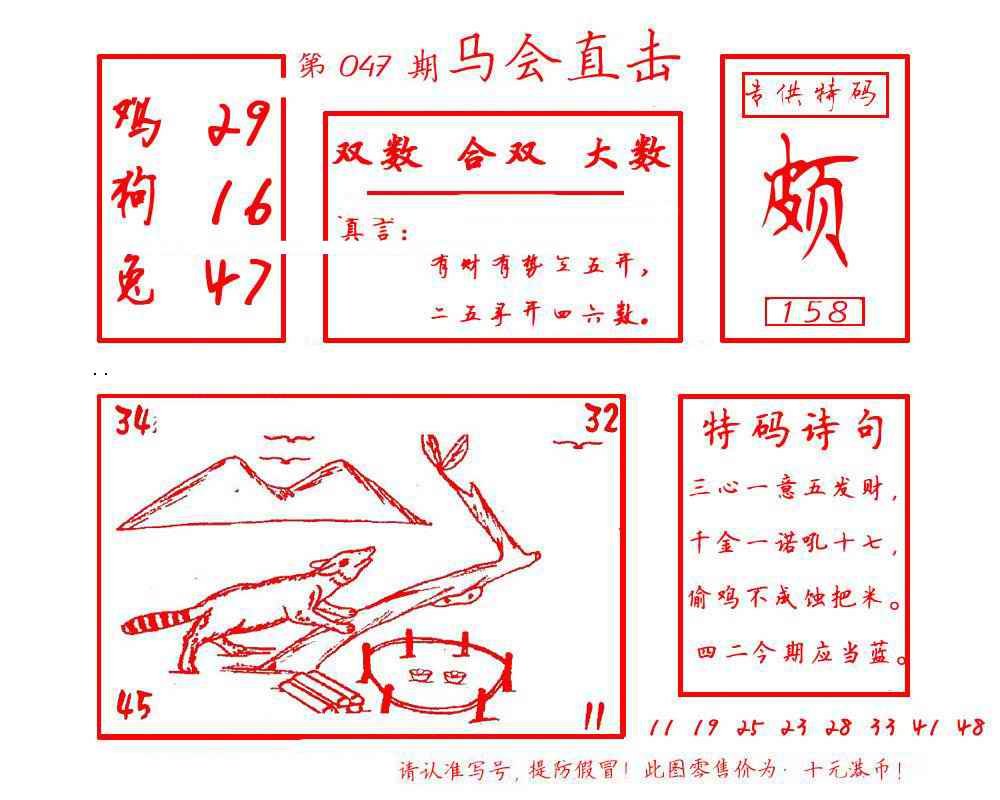 第 047 期 马会直击
鸡 29
狗 16
兔 47
双数 合双 大数
真言：
有财有势三五开，
二五寻开四六数。
专供特码
颇
158
34
32
45
11
特码诗句
三心一意五发财，
千金一诺吼十七，
偷鸡不成蚀把米。
四二今期应当蓝。
11 19 25 23 28 33 41 48
请认准写号，提防假冒！此图零售价为·十元港币！